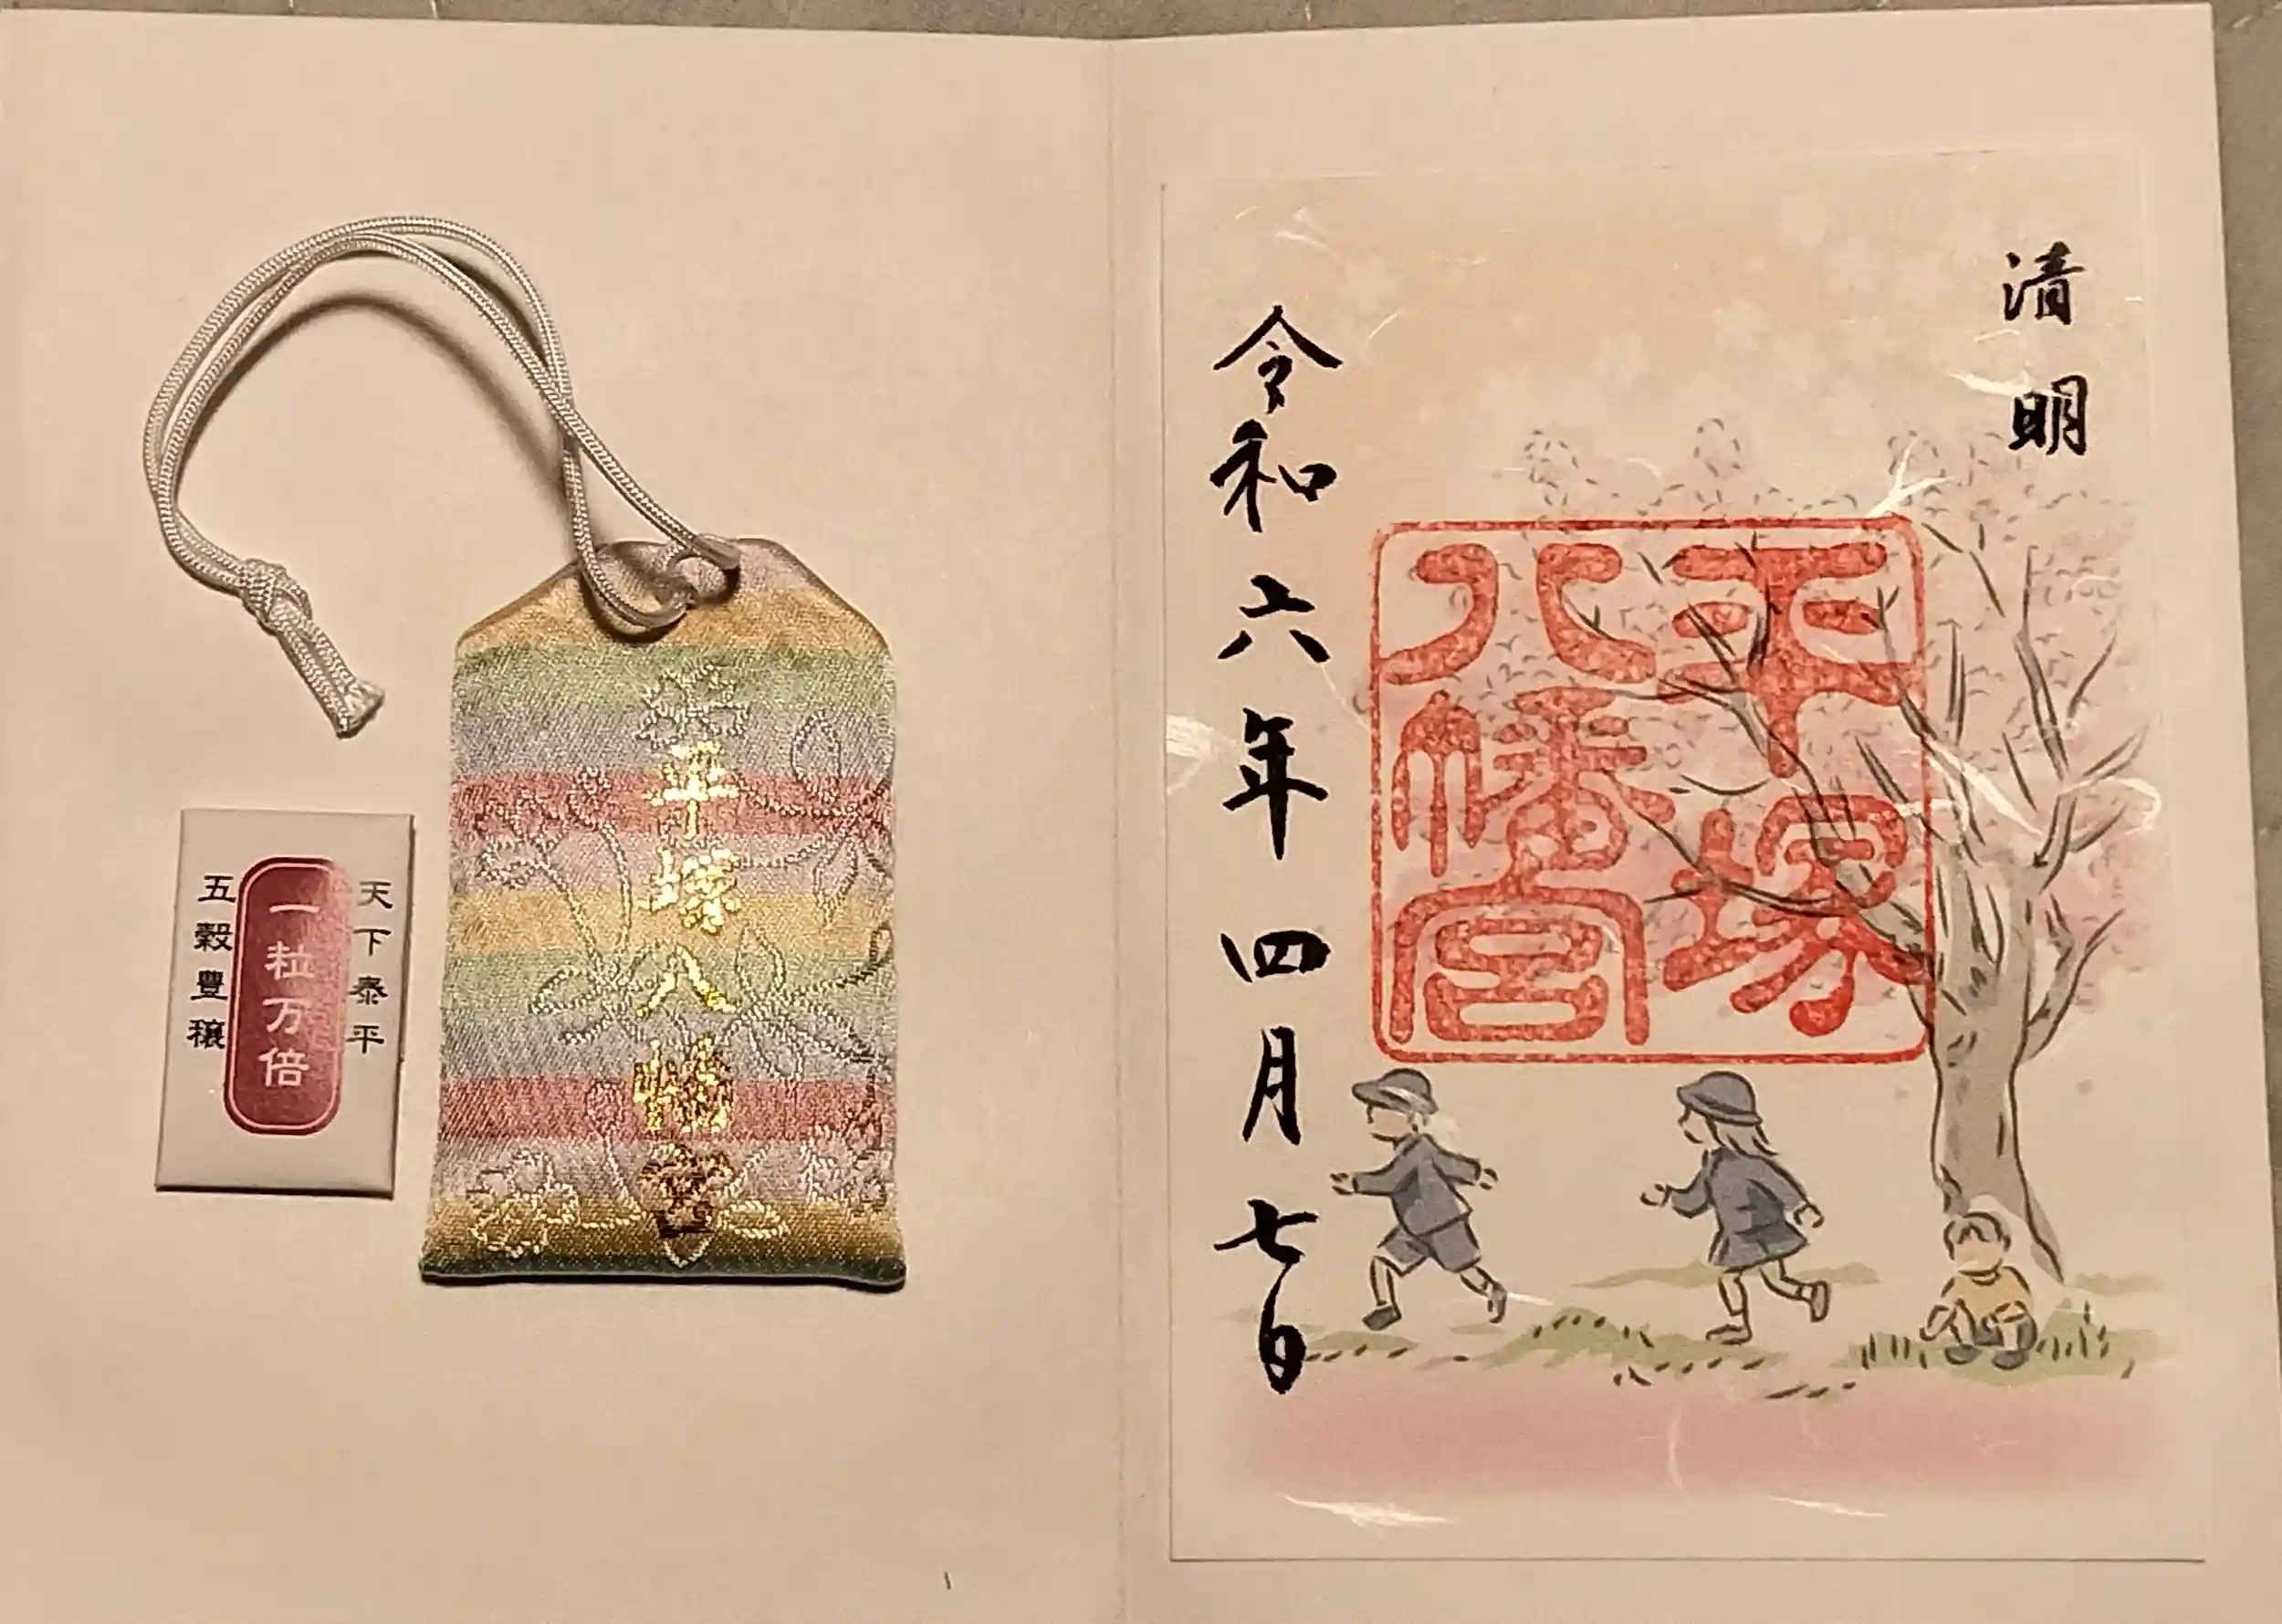 清明
平塚
八幡宮
令和六年四月七日
平塚八幡宮
天下泰平
一粒万倍
五穀豐穰